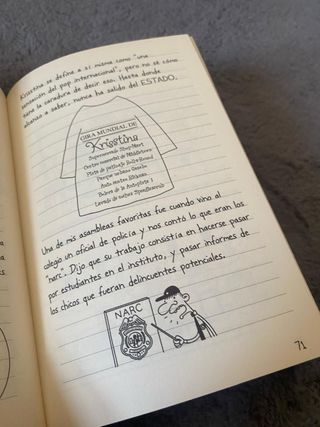 Krisstina se define a sí misma como "una
sensación del pop internacional", pero no sé cómo
tiene la caradura de decir eso. Hasta donde
alcanzo a saber, nunca ha salido del ESTADO.
GIRA MUNDIAL DE
Krisstina
Supermercado Shop Smart
Centro comercial de Middletown
Pista de patinaje Roll-a-Round
Parque urbano
Auto motor
Bolera de la Autopista 1
Lavado de coches
Una de mis asambleas favoritas fue cuando vino al
colegio un oficial de policía y nos contó lo que eran los
"narc". Dijo que su trabajo consistía en hacerse pasar
por estudiantes en el instituto, y pasar informes de
los chicos que fueran delincuentes potenciales.
NARC
71